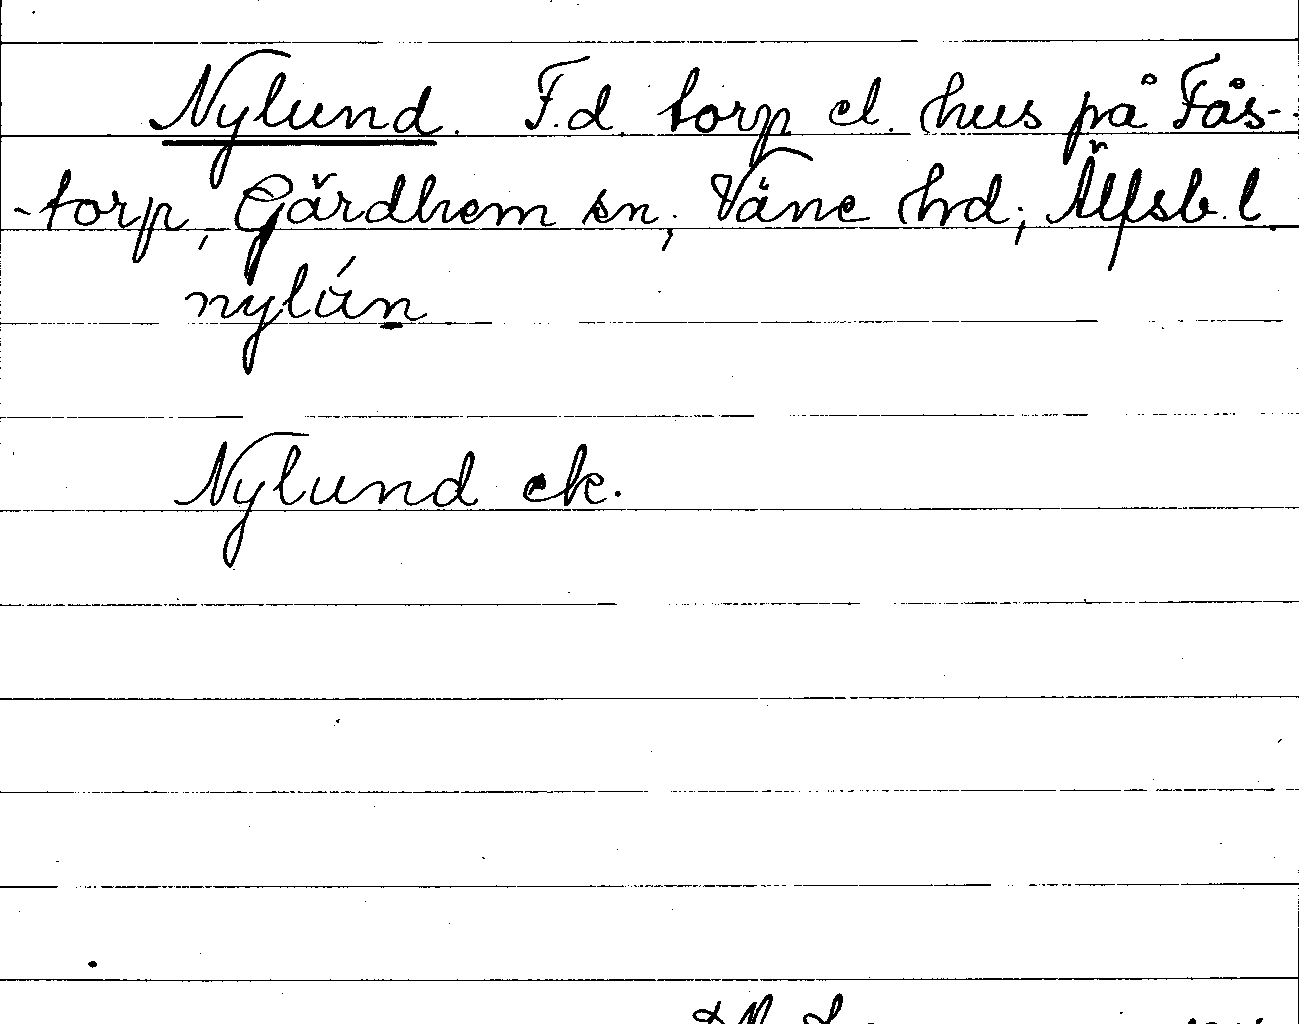 Nylund. F.d. torp el. hus på Fås-
-torp, Gärdhem sn; Väne hd; Älfsb. l.
nylún
Nylund ek.